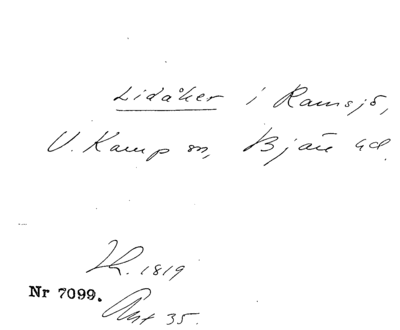 Lidåker i Ramsjö,
V. Karup sn, Bjäre hd.
Lh. 1819
Nr 7099.
Ant 35.